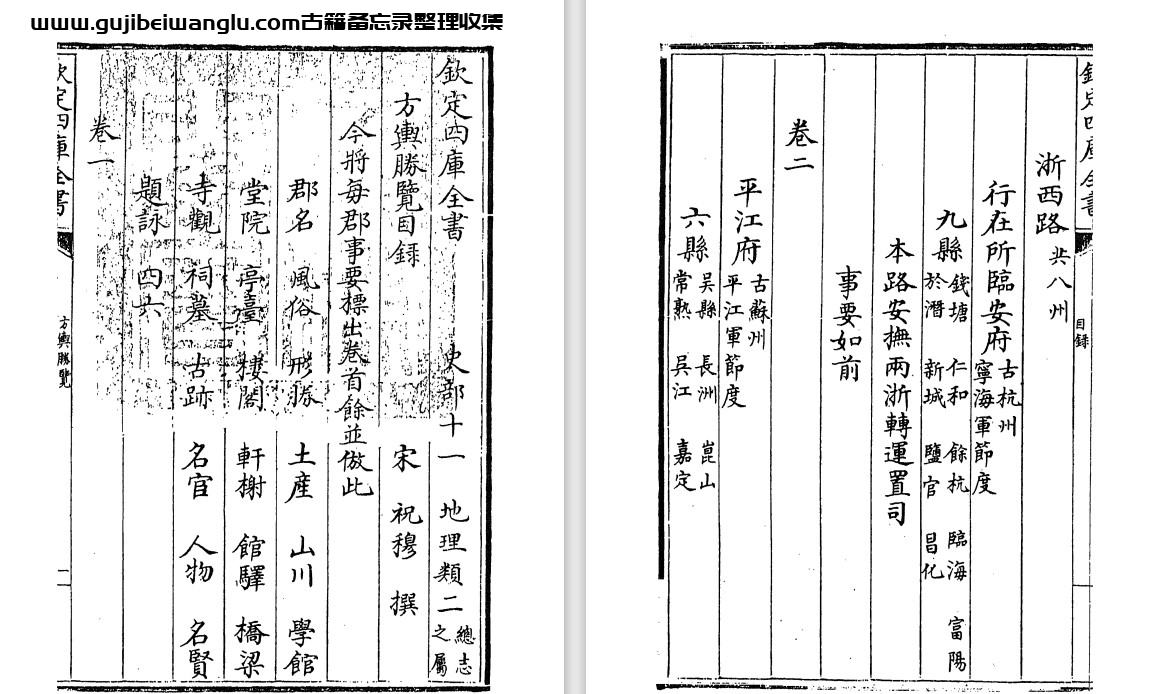 www.gujibeiwanglu.com古籍备忘录整理收集
欽定四庫全書 史部十一 地理類二 總志之屬
方輿勝覽目録 宋 祝穆 撰
今將每郡事要標出卷首餘並倣此
郡名 風俗 形勝 土産 山川 學館
堂院 亭臺 樓閣 軒榭 館驛 橋梁
寺觀 祠墓 古跡 名官 人物 名賢
題詠 四六
卷一
欽定四庫全書 方輿勝覽
欽定四庫全書 目録
浙西路 共八州
行在所臨安府 古杭州 寧海軍節度
九縣 錢塘 仁和 餘杭 臨海 富陽 於潛 新城 鹽官 昌化
本路安撫兩浙轉運置司
事要如前
卷二
平江府 古蘇州 平江軍節度
六縣 吴縣 長洲 崑山 常熟 吴江 嘉定